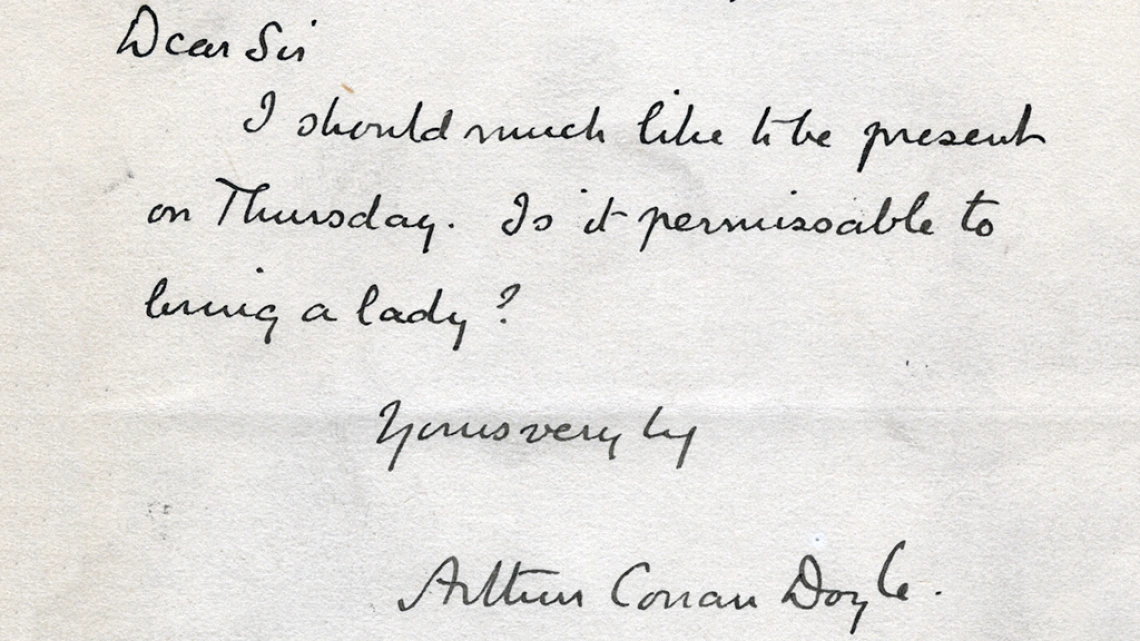 Dear Sir
I should much like to be present
on Thursday. Is it permissable to
bring a lady?
Yours very try
Arthur Conan Doyle.